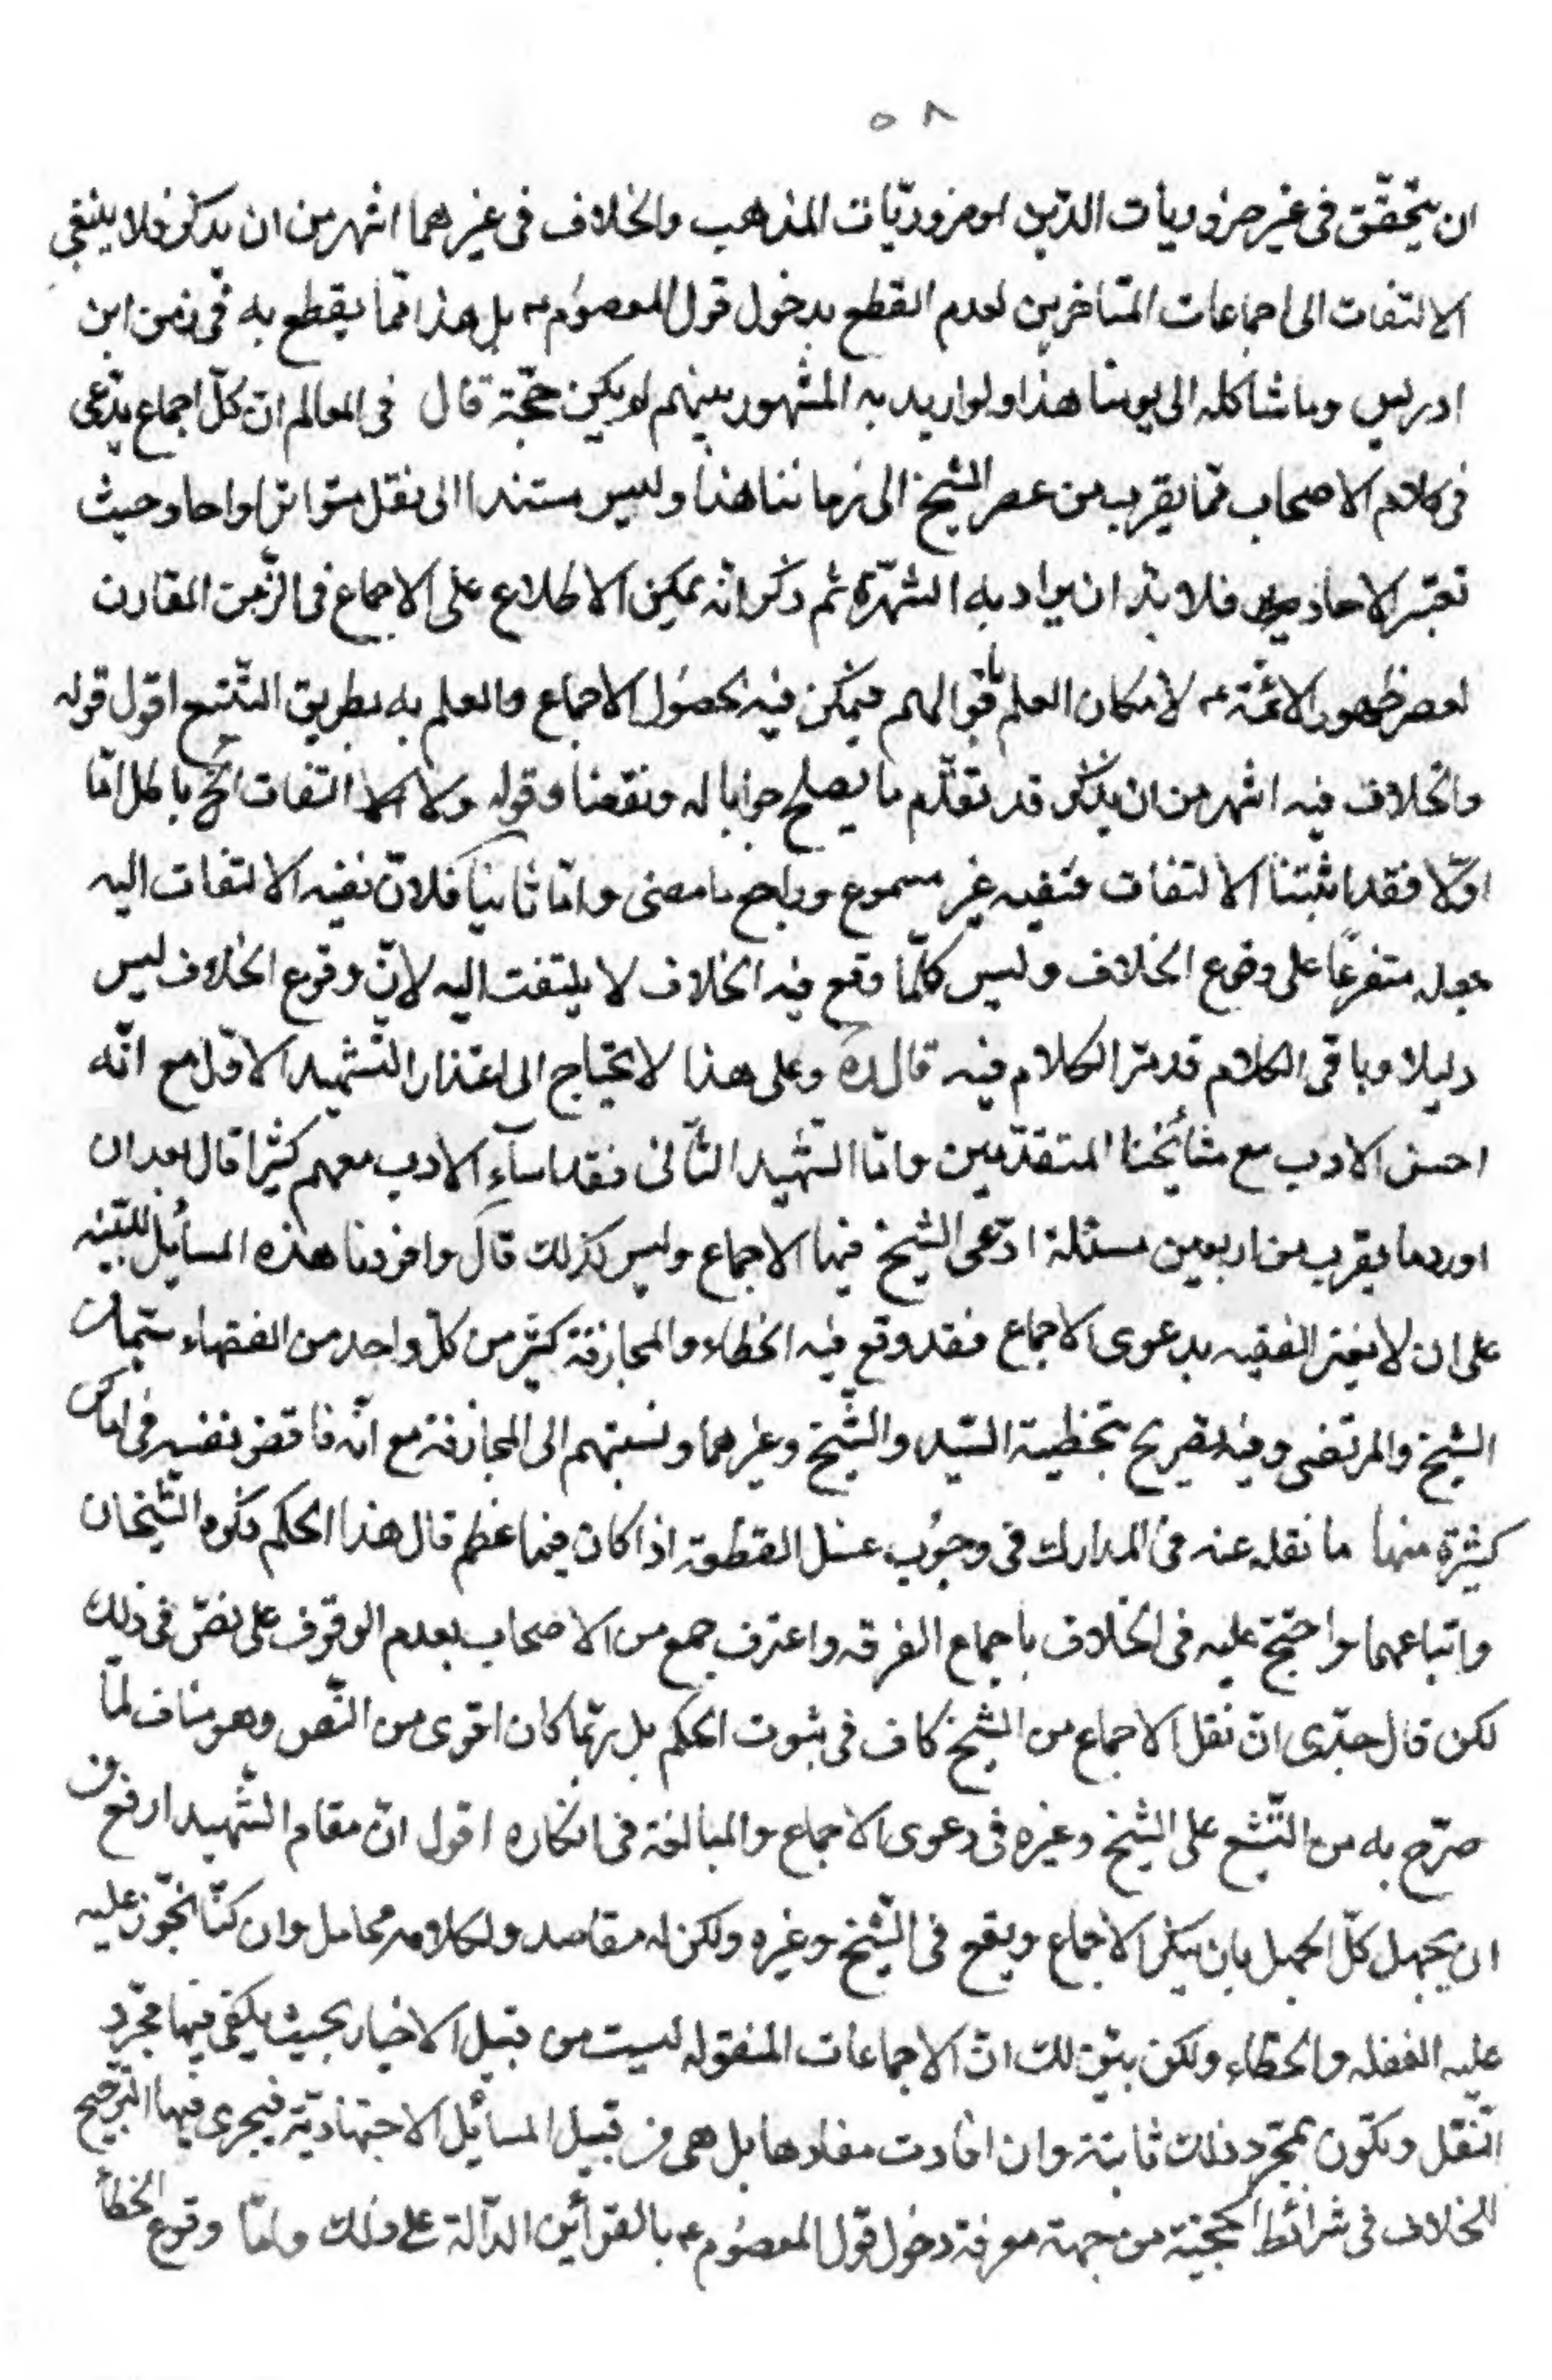 ٥٨
ان يتحقّق فى غير ضروريات الدّين او ضروريّات المذهب والخلاف فى غيرهما اشهر من ان يذكر فلا ينبغى
الالتفات الى اجماعات المتاخرين لعدم القطع بدخول قول المعصوم ع بل هذا ممّا يقطع به فى زمن ابن
ادريس وما شاكله الى يومنا هذا ولو اريد به المشهور بينهم لم يكن حجّة قال فى المعالم انّ كلّ اجماع يدّعى
فى كلام الاصحاب ممّا يقرب من عصر الشيخ الى زماننا هذا وليس مستندا الى نقل متواتر او احاد حيث
تعتبر الاحاد فلا بدّ ان يراد به الشّهرة ثم ذكر انّه يمكن الاطلاع على الاجماع فى الزّمن المقارن
لعصر ظهور الائمّة ع لامكان العلم باقوالهم فيمكن فيه حصول الاجماع والعلم به بطريق التّتبع اقول قوله
والخلاف فيه اشهر من ان يذكر قد تقدّم ما يصلح جوابا له ونقضا وقوله ولا التفات الخ باطل امّا
اوّلا فقد اثبتنا الالتفات فنفيه غير مسموع وراجع ما مضى وامّا ثانيا فلانّ نفيه الالتفات اليه
جعله متفرعًا على وقوع الخلاف وليس كلّما وقع فيه الخلاف لا يلتفت اليه لانّ وقوع الخلاف ليس
دليلا وباقى الكلام قد مرّ الكلام فيه قال ره وعلى هذا لا يحتاج الى اعتذار الشّهيد الاوّل مع انّه
احسن الادب مع مشائخنا المتقدّمين وامّا الشّهيد الثّانى فقد اساء الادب معهم كثيرا قال بعد ان
اورد ما يقرب من اربعين مسئلة ادّعى الشيخ فيها الاجماع وليس كذلك قال وافردنا هذه المسايل للتنبيه
على ان لا يغتر الفقيه بدعوى الاجماع فقد وقع فيه الخطاء والمجازفة كثير من كلّ واحد من الفقهاء سيّما من
الشيخ والمرتضى وفيه تصريح بتخطية السّيد والشّيخ وغيرهما ونسبتهم الى المجازفة مع انّه ناقض نفسه فى اماكن
كثيرة منها ما نقله عنه فى المدارك فى وجوب غسل القطعة اذا كان فيها عظم قال هذا الحكم ذكره الشّيخان
واتباعهما واحتجّ عليه فى الخلاف باجماع الفرقه واعترف جمع من الاصحاب بعدم الوقوف على نصّ فى ذلك
لكن قال جدّى انّ نقل الاجماع من الشيخ كاف فى ثبوت الحكم بل ربّما كان اقوى من النّص وهو مناف لما
صرّح به من التّشنيع على الشيخ وغيره فى دعوى الاجماع والمبالغة فى انكاره اقول انّ مقام الشّهيد ارفع من
ان يجهل كلّ الجهل بان ينكر الاجماع ويقع فى الشّيخ وغيره ولكن له مقاصد ولكلامه محامل وان كنّا نجّوز عليه
عليه الغفله والخطاء ولكن بيّن لك انّ الاجماعات المنقوله ليست من قبيل الاخبار بحيث يكفى فيها مجّرد
النّقل وتكون بمجّرد ذلك ثابتة وان افادت مفادها بل هى من قبيل المسائل الاجتهاديّة فيجرى فيها التّرجيح
للخلاف فى شرائط الحجّية من جهة معرفة دخول قول المعصوم ع بالقرآئن الدّالة على ذلك وامّا وقوع الخطأ